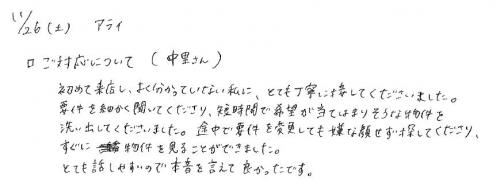 11/26(土) アライ
ロ ご対応について (中里さん)
初めて来店し、よく分かっていない私に、とても丁寧に接してくださいました。
要件を細かく聞いてくださり、短時間で希望が当てはまりそうな物件を
洗い出してくださいました。途中で要件を変更しても嫌な顔せず探してくださり、
すぐに 物件を見ることができました。
とても話しやすいので本音を言えて良かったです。